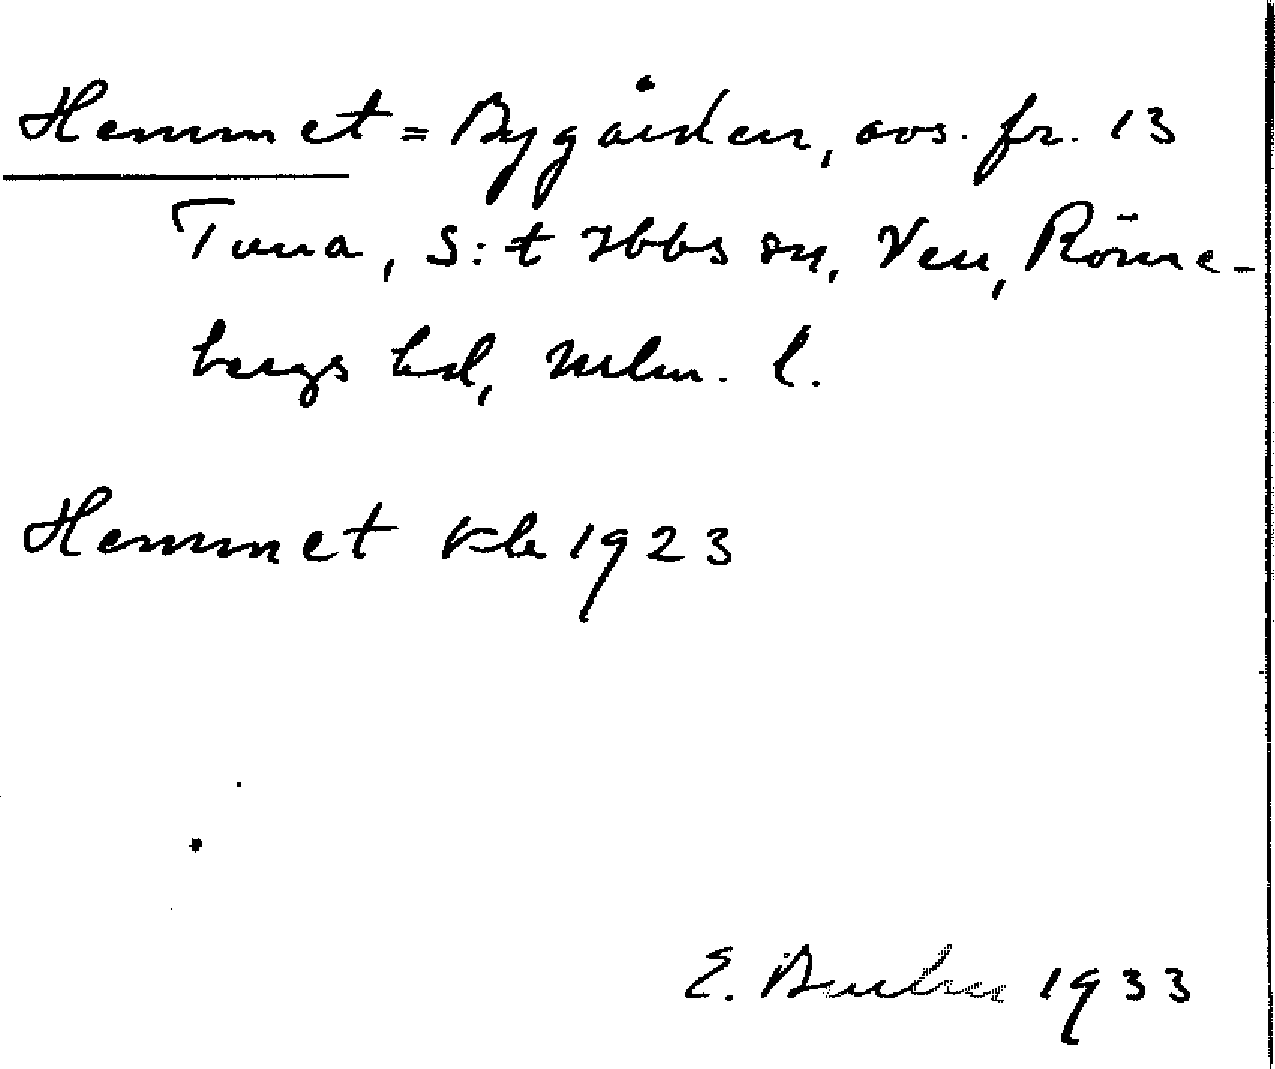 Hemmet = Bygården, avs. fr. 13
Tuna, S:t Ibbs sn, Ven, Rönne-
bergs hd, Mlm. l.
Hemmet 1923
E. 1933